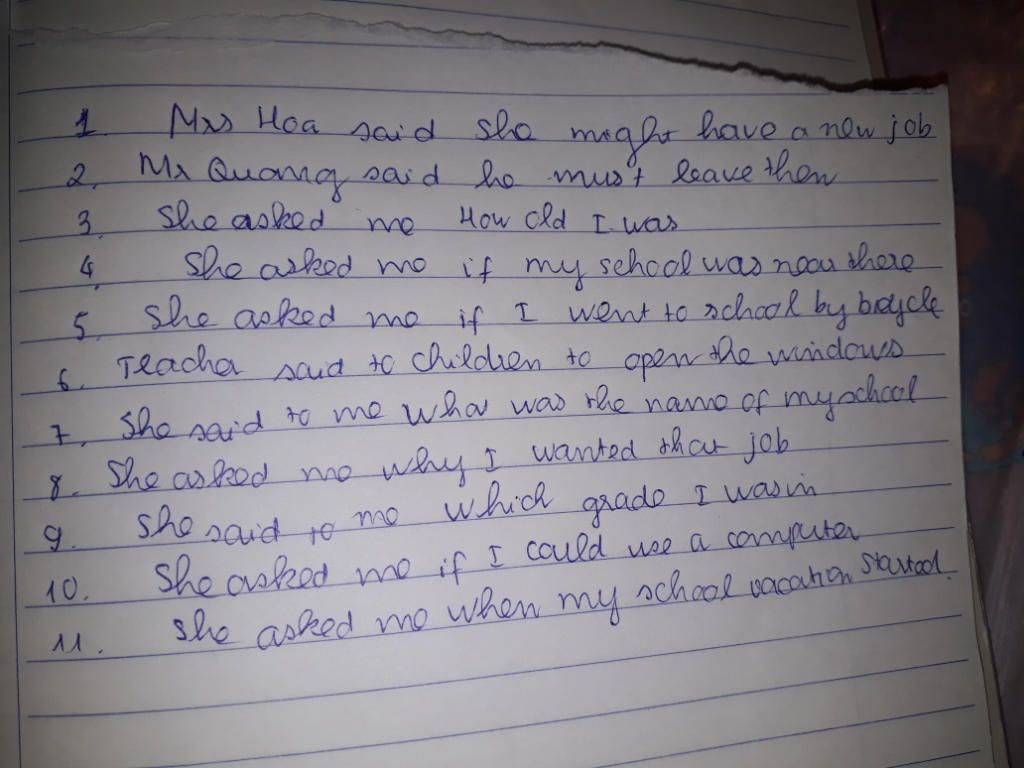 1. Mrs Hoa said she might have a new job
2. Mr Quang said he must leave then
3. She asked me How old I was
4. She asked me if my school was near there
5. She asked me if I went to school by bicycle
6. Teacher said to children to open the windows
7. She said to me what was the name of my school
8. She asked me why I wanted that job
9. She said to me which grade I was in
10. She asked me if I could use a computer
11. She asked me when my school vacation started.